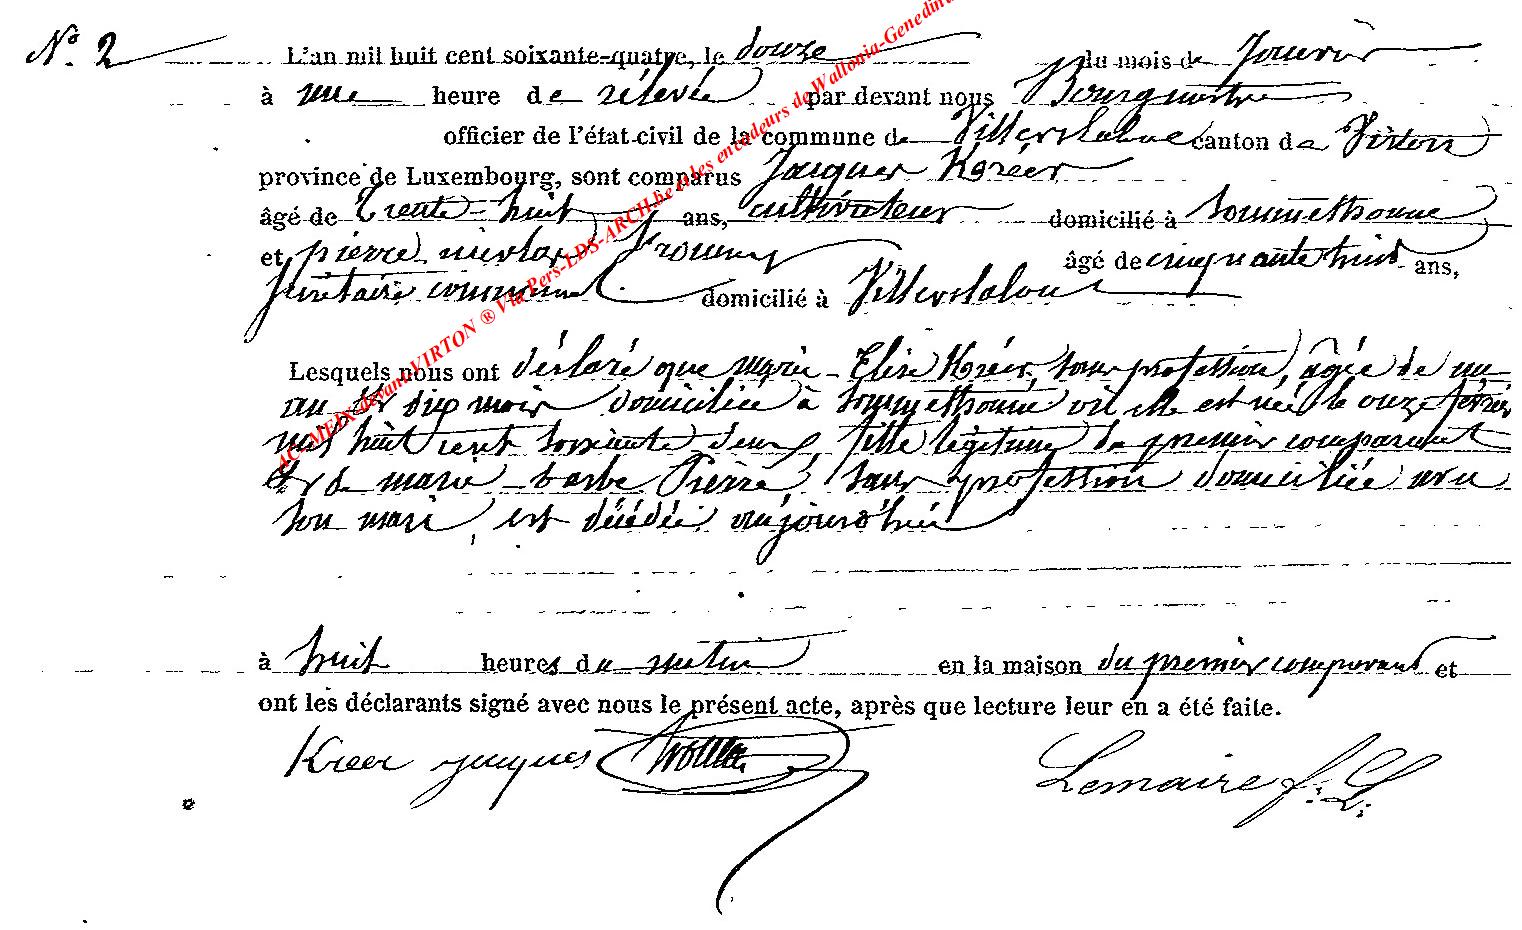 N° 2
L'an mil huit cent soixante-quatre, le douze du mois de Janvier
à une heure de rélevée par devant nous Bourgmestre
officier de l'état-civil de la commune de Villerslaloue canton de Virton
province de Luxembourg, sont comparus Jacques Kréer
âgé de trente-huit ans, cultivateur domicilié à Sommethonne
et pierre nicolas âgé de cinquante huit ans,
Sécrétaire communal domicilié à Villerslaloue
Lesquels nous ont déclaré que marie-Elise Kréer, sans profession, âgée de un
an et dix mois domiciliée à Sommethonne où elle est née le onze février
mil huit cent soixante deux, fille légitime du premier comparant
et de marie-barbe Pierre, sans profession domiciliée avec
son mari, est décédée aujourd'hui
à huit heures du matin en la maison du premier comparant et
ont les déclarants signé avec nous le présent acte, après que lecture leur en a été faite.
Kreer jacques Lemaire f. L.
AC MEIX devant VIRTON ® Via Pers-LDS-ARCH.be et les encodeurs de Wallonia-Genedin